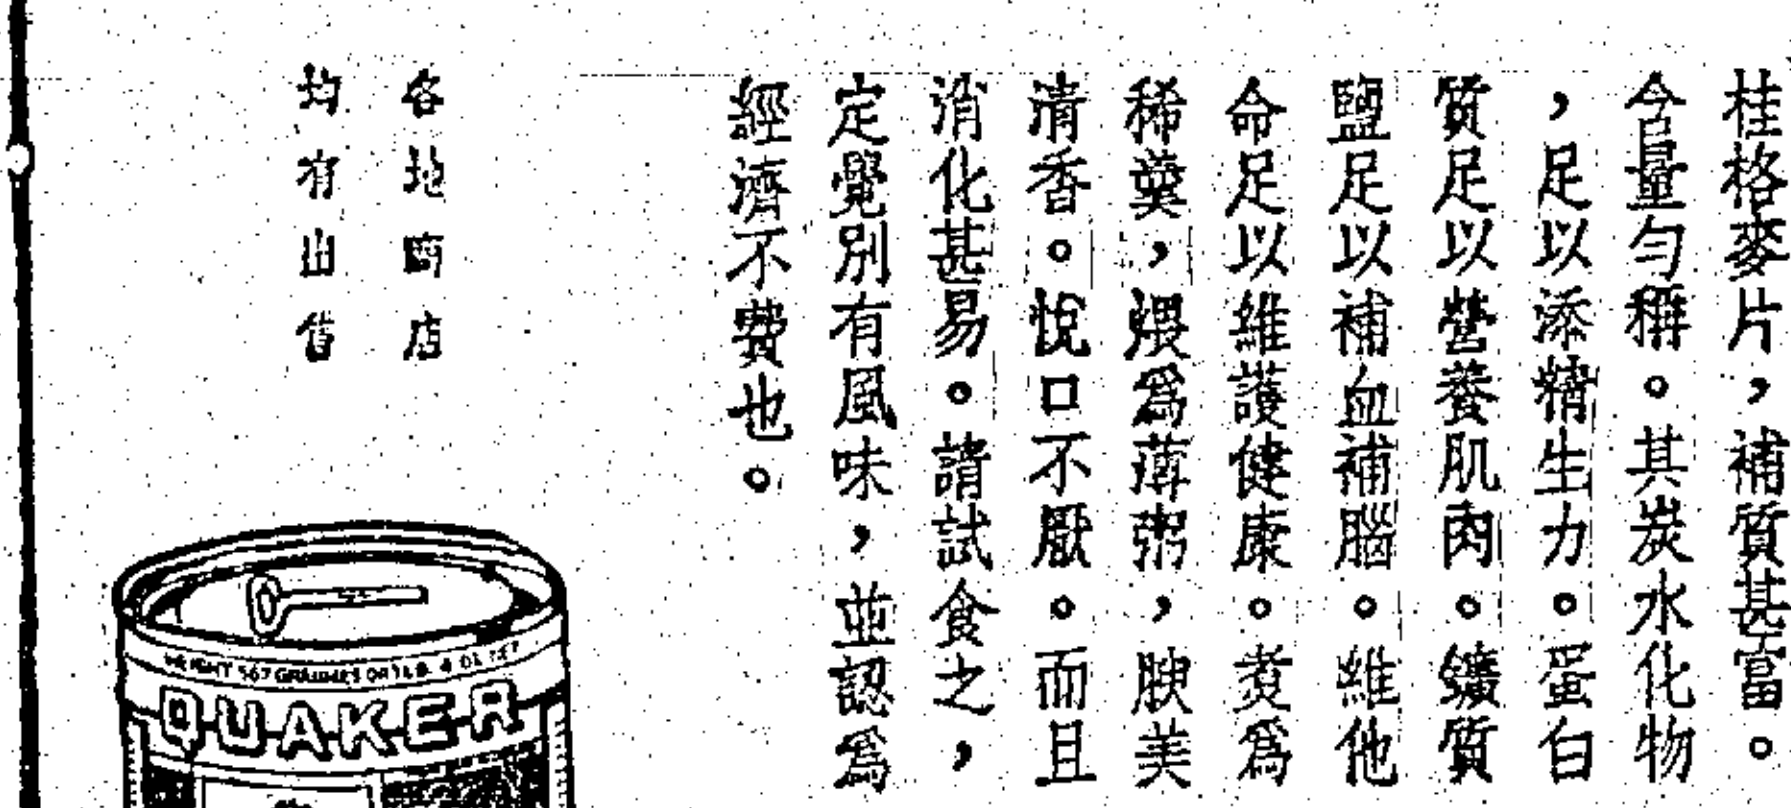 桂格麥片,補質甚富。
含量勻稱。其炭水化物
,足以添精生力。蛋白
質足以營養肌肉。鑛質
鹽足以補血補腦。維他
命足以維護健康。煑爲
稀羹,煨爲薄粥,腴美
清香。悅口不厭。而且
消化甚易。請試食之,
定覺別有風味,並認爲
經濟不費也。
各地商店
均有出售
WEIGHT 567 GRAMMES OR 1 LB. 4 OZ. NET
QUAKER